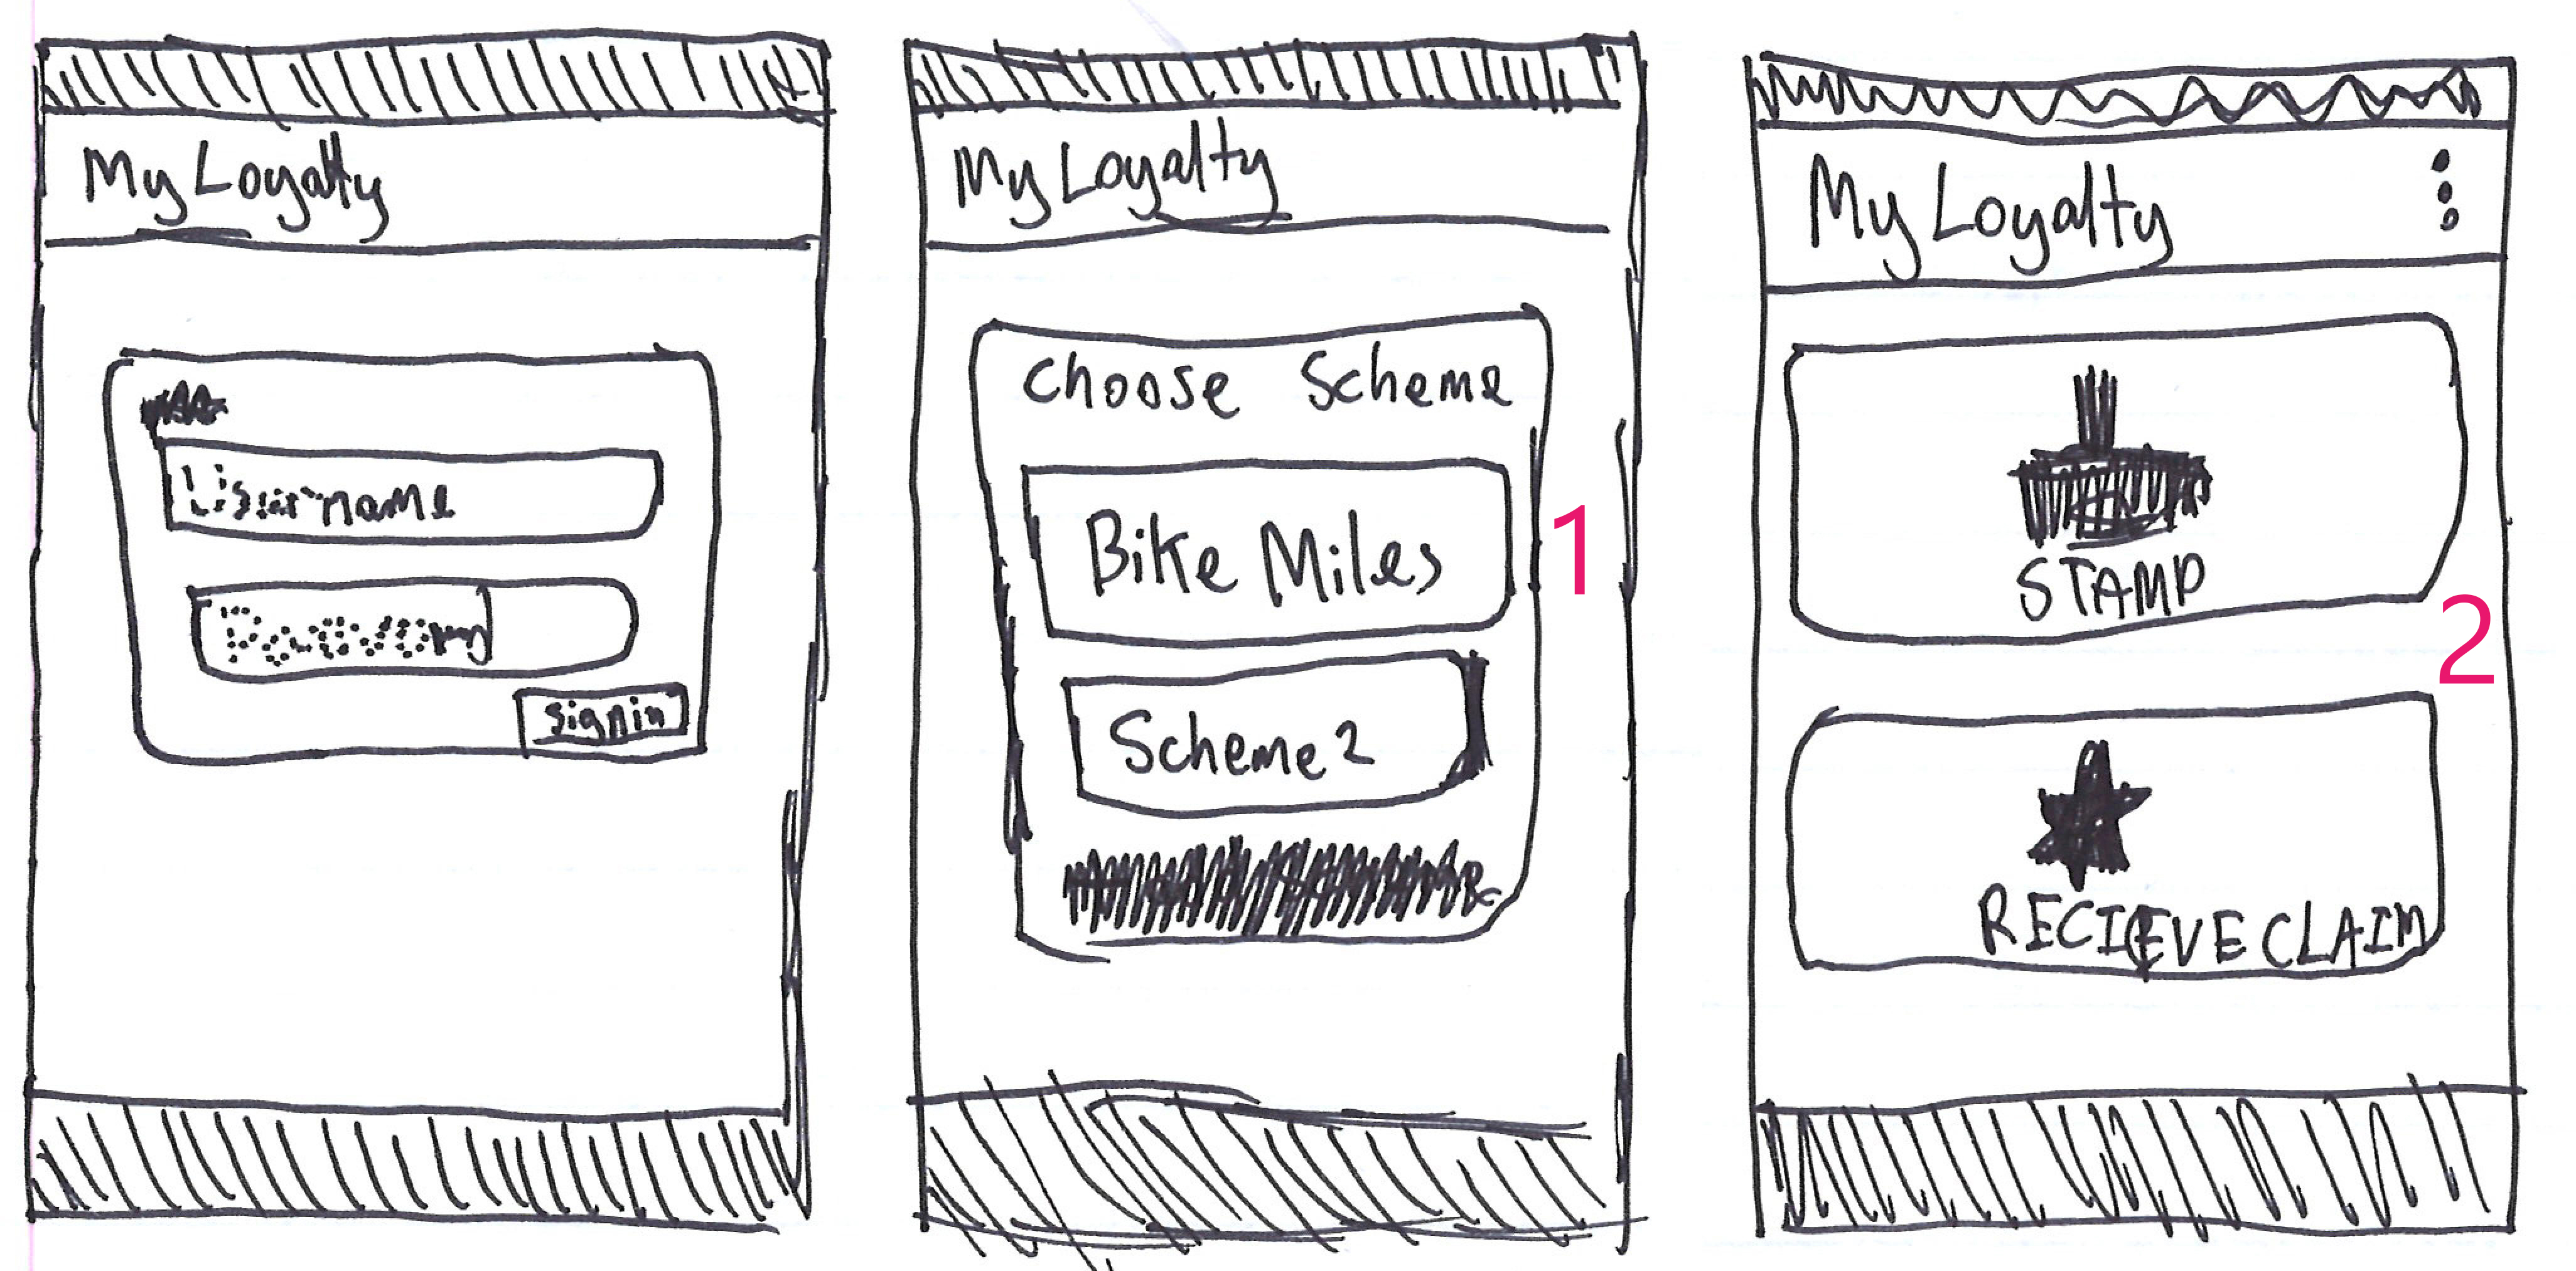 My Loyalty
Username
Password
signin
My Loyalty
Choose Scheme
Bike Miles
1
Scheme 2
My Loyalty
STAMP
2
RECIEVE CLAIM